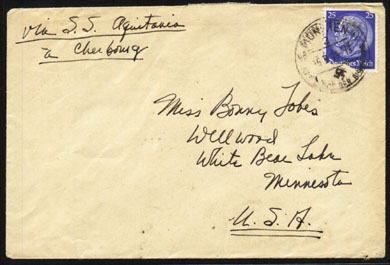 via S.S. Aquitania
a Cherbourg
25 25
Deutsches Reich
MÜNCHEN
Miss Bonny Jobes
Wellwood
White Bear Lake
Minnesota
U.S.A.